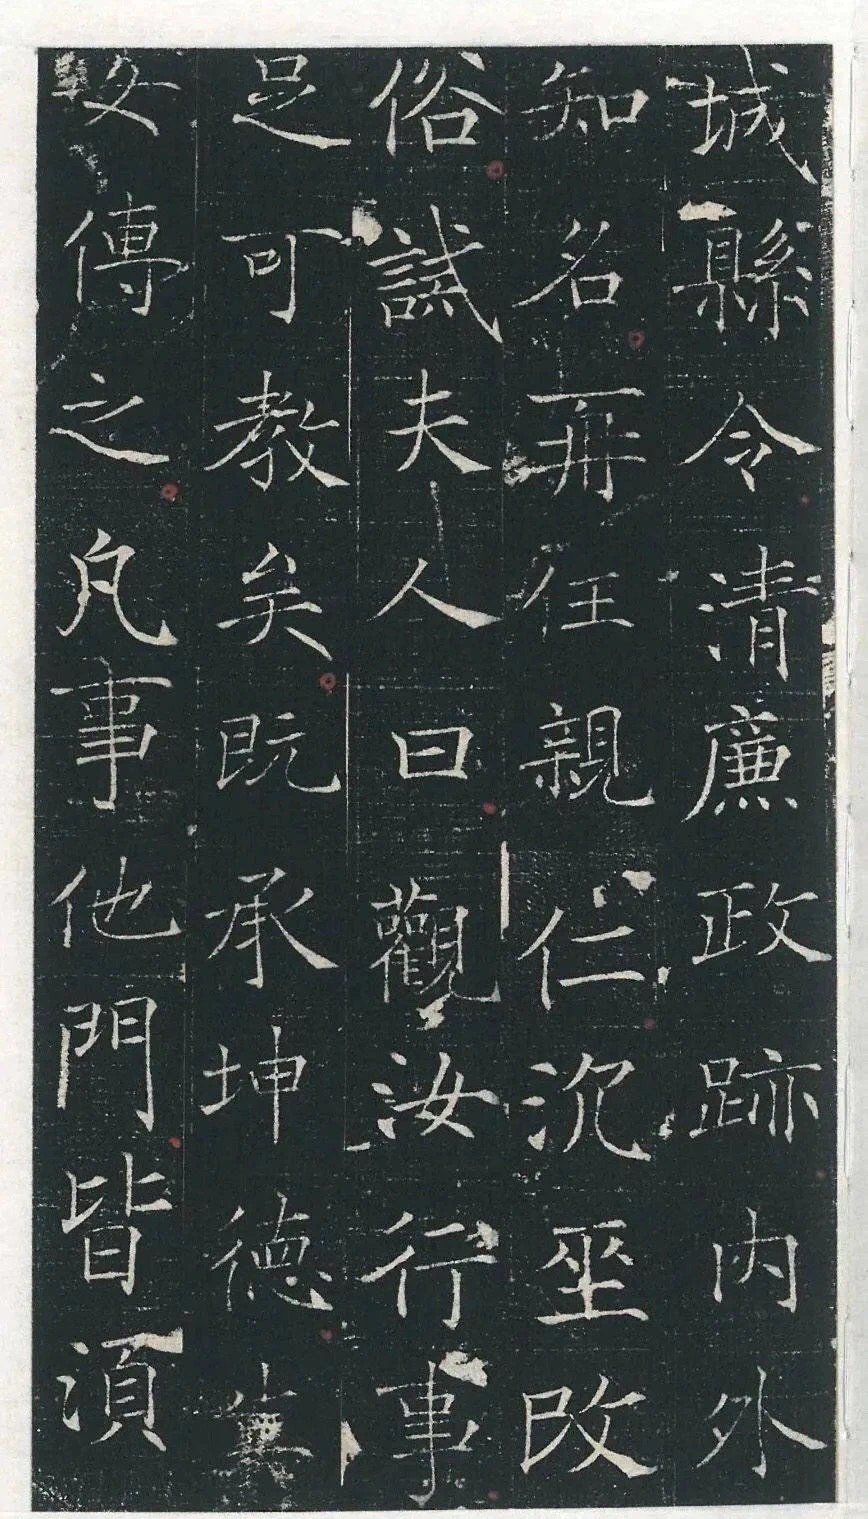 城縣令清廉政跡內外
知名再任親仁沉坐改
俗誡夫人曰觀汝行事
足可教矣既承坤德冀
女傳之凡事他門皆須